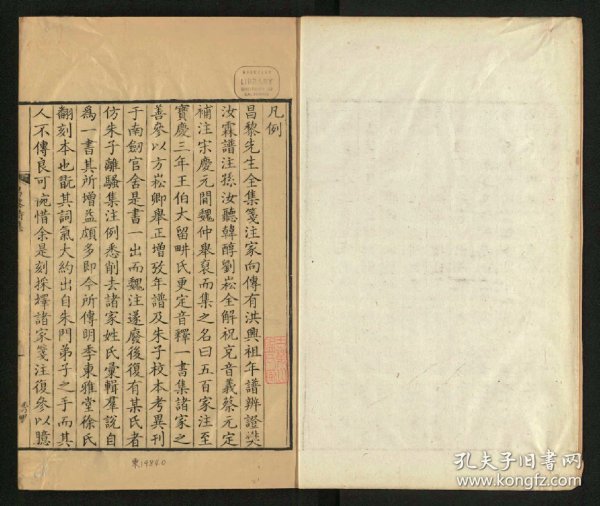 凡例
昌黎先生全集箋注家向傳有洪興祖年譜辨證樊
汝霖譜注孫汝聽韓醇劉崧全解祝充音義蔡元定
補注宋慶元閒魏仲舉裒而集之名曰五百家注至
寶慶三年王伯大留畊氏更定音釋一書集諸家之
善參以方崧卿舉正增攷年譜及朱子校本考異刊
于南劒官舍是書一出而魏注遂廢後復有某氏者
仿朱子離騷集注例悉削去諸家姓氏彙輯羣說自
爲一書其所增益頗多即今所傳明季東雅堂徐氏
翻刻本也翫其詞氣大約出自朱門弟子之手而其
人不傳良可惋惜余是刻採擇諸家箋注復參以臆
LIBRARY
東14840
孔夫子旧书网
www.kongfz.com